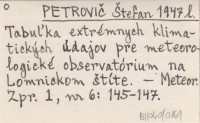 PETROVIČ Štefan 1947 l.
Tabuľka extrémnych klima-
tických údajov pre meteoro-
logické observatórium na
Lomnickom štíte. – Meteor.
Zpr. 1, nr 6: 145-147.